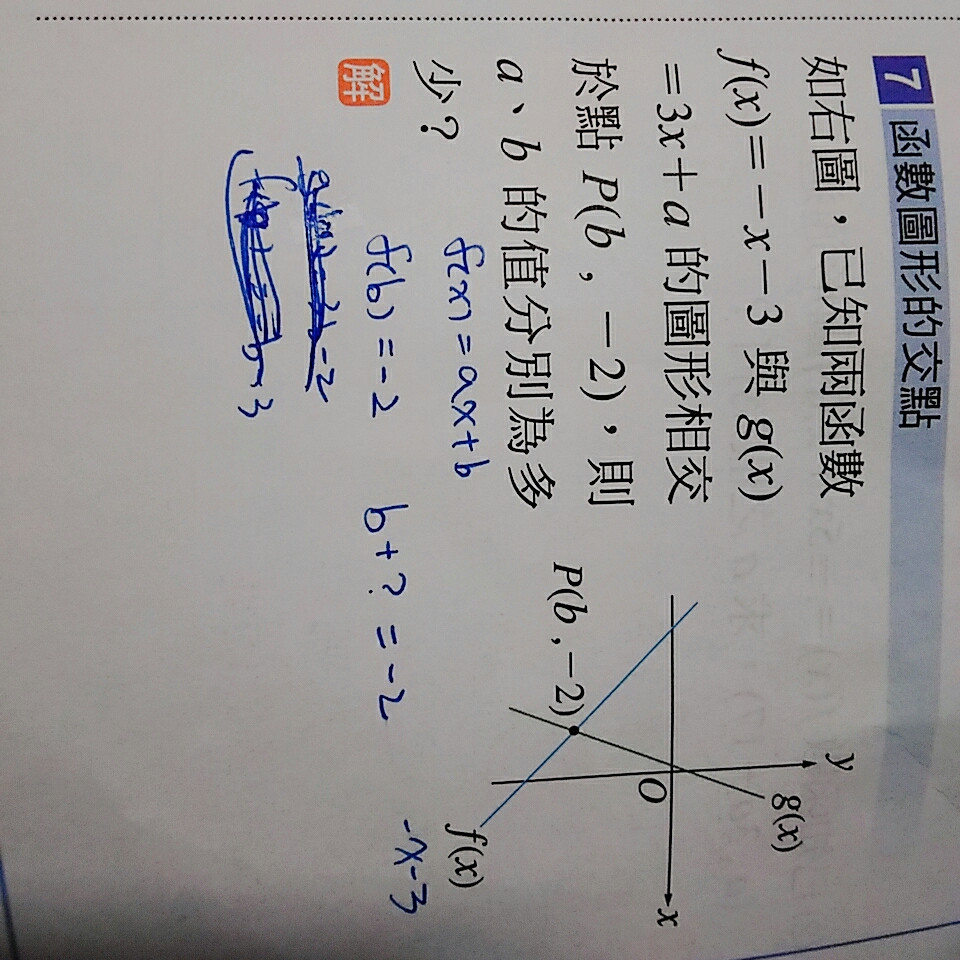 7 函數圖形的交點
如右圖，已知兩函數
f(x)=－x－3 與 g(x)
=3x+a 的圖形相交
於點 P(b，－2)，則
a、b 的值分別為多
少？
y
g(x)
O
x
P(b，－2)
f(x)
解
f(x) = ax+b
f(b) = -2
b+? = -2
-x-3